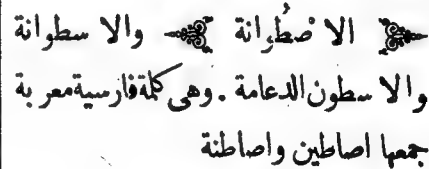 الاصْطُوانة والا سطوانة
والا سطون الدعامة . وهى كلمة فارسية معربة
جمعها اصاطين واصاطنة